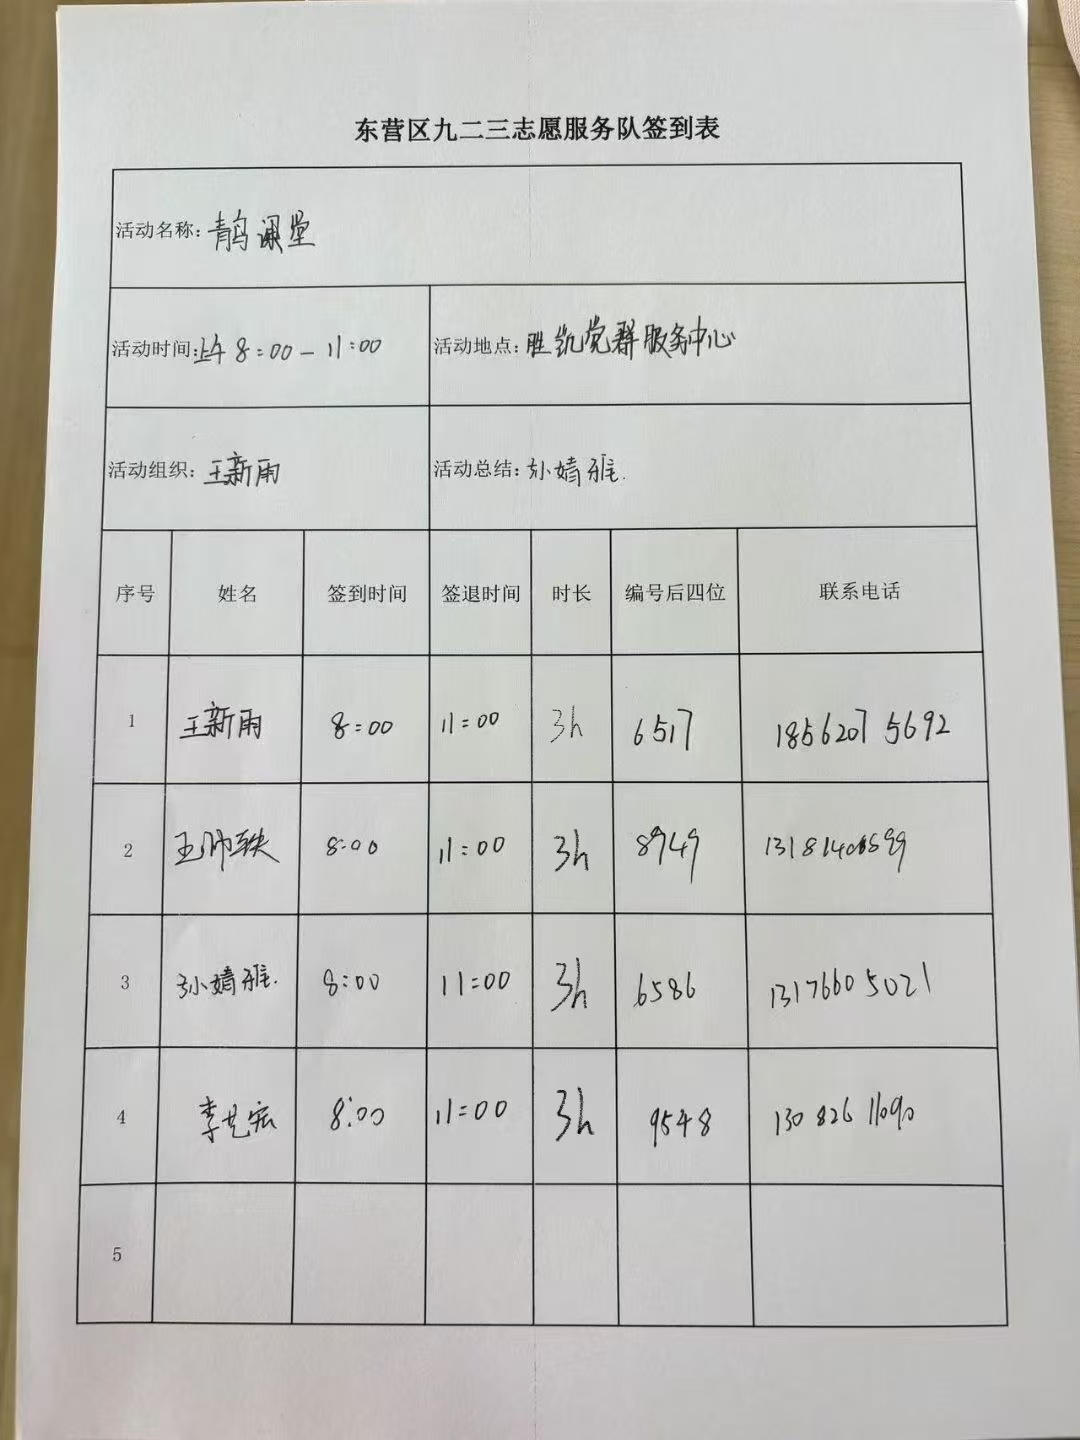 东营区九二三志愿服务队签到表
活动名称: 青鸟课堂
活动时间: 上午 8:00 — 11:00 活动地点: 胜凯党群服务中心
活动组织: 王新雨 活动总结: 孙婧雅.
序号 姓名 签到时间 签退时间 时长 编号后四位 联系电话
1 王新雨 8:00 11:00 3h 6517 18562075692
2 8:00 11:00 3h 8949
3 孙婧雅. 8:00 11:00 3h 6586 13176605021
4 8:00 11:00 3h 9548 130 826 11090
5